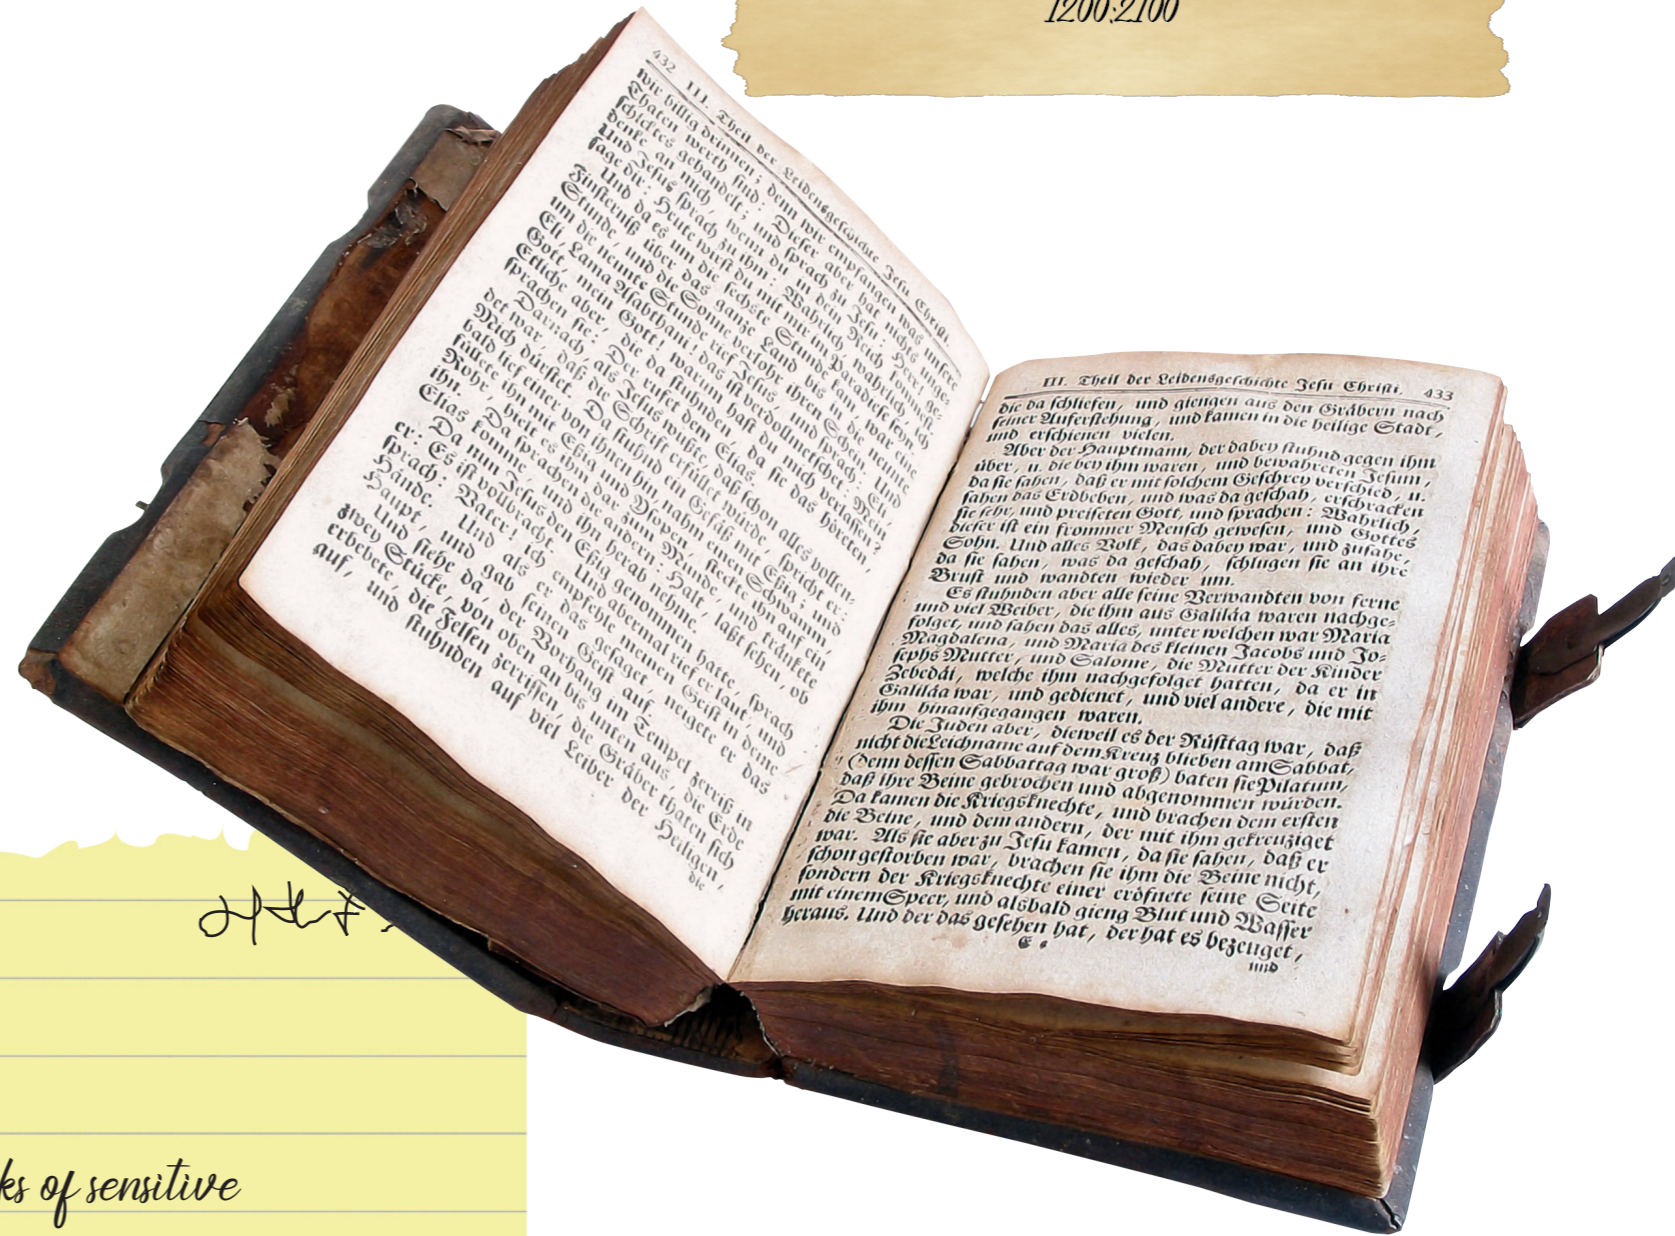 1200;2100
432 III. Theil der Leidensgeschichte Jesu Christi.
wir billig drinnen; denn wir empfangen was unsere
Thaten werth sind: Dieser aber hat nichts unge-
schicktes gehandelt; und sprach zu Jesu: Herr! ge-
denke an mich, wenn du in dein Reich kommest.
Und Jesus sprach zu ihm: Wahrlich, wahrlich, ich
sage dir: Heute wirst du mit mir im Paradiese seyn.
Und da es um die sechste Stunde kam, war eine
Finsterniß über das ganze Land bis in die neunte
Stunde, und die Sonne verlohr ihren Schein. Und
um die neunte Stunde rief Jesus, und sprach: Eli,
Eli, Lama Asabthani: das ist verdollmetschet: Mein
Gott, mein Gott! warum hast du mich verlassen?
Etliche aber, die da stuhnden, da sie das höreten,
sprachen sie: Der rufet dem Elias.
Darnach, als Jesus wußte, daß schon alles vollen-
det war, daß die Schrift erfüllet würde, spricht er:
Mich dürstet. Da stuhnd ein Gefäß mit Eßig; und
bald lief einer von ihnen hin, nahm einen Schwamm,
füllete ihn mit Eßig und Ysopen, steckte ihn auf ein
Rohr, hielt es ihm dar zum Munde, und tränkete
ihn. Da sprachen die andern: Halt, laßt sehen, ob
Elias komme, und ihn herab nehme.
Da nun Jesus den Eßig genommen hatte, sprach
er: Es ist vollbracht. Und abermal rief er laut, und
sprach: Vater! ich empfehle meinen Geist in deine
Hände. Und als er das gesaget, neigete er das
Haupt, und gab seinen Geist auf.
Und siehe da, der Vorhang im Tempel zerriß in
zwey Stücke, von oben an bis unten aus, die Erde
erbebete, die Felsen zerrissen, die Gräber thaten sich
auf, und stuhnden auf viel Leiber der Heiligen,
die
III. Theil der Leidensgeschichte Jesu Christi. 433
die da schliefen, und giengen aus den Gräbern nach
seiner Auferstehung, und kamen in die heilige Stadt,
und erschienen vielen.
Aber der Hauptmann, der dabey stuhnd gegen ihm
über, u. die bey ihm waren, und bewahreten Jesum,
da sie sahen, daß er mit solchem Geschrey verschied, u.
sahen das Erdbeben, und was da geschah, erschracken
sie sehr, und preiseten Gott, und sprachen: Wahrlich,
dieser ist ein frommer Mensch gewesen, und Gottes
Sohn. Und alles Volk, das dabey war, und zusahe,
da sie sahen, was da geschah, schlugen sie an ihre
Brust und wandten wieder um.
Es stuhnden aber alle seine Verwandten von ferne
und viel Weiber, die ihm aus Galiläa waren nachge-
folget, und sahen das alles, unter welchen war Maria
Magdalena, und Maria des kleinen Jacobs und Jo-
sephs Mutter, und Salome, die Mutter der Kinder
Zebedäi, welche ihm nachgefolget hatten, da er in
Galiläa war, und gedienet, und viel andere, die mit
ihm hinaufgegangen waren.
Die Juden aber, dieweil es der Rüsttag war, daß
nicht die Leichname auf dem Kreuz blieben am Sabbat,
(denn dessen Sabbattag war groß) baten sie Pilatum,
daß ihre Beine gebrochen und abgenommen würden.
Da kamen die Kriegsknechte, und brachen dem ersten
die Beine, und dem andern, der mit ihm gekreuziget
war. Als sie aber zu Jesu kamen, da sie sahen, daß er
schon gestorben war, brachen sie ihm die Beine nicht,
sondern der Kriegsknechte einer eröfnete seine Seite
mit einem Speer, und alsbald gieng Blut und Wasser
heraus. Und der das gesehen hat, der hat es bezeuget,
und
ks of sensitive